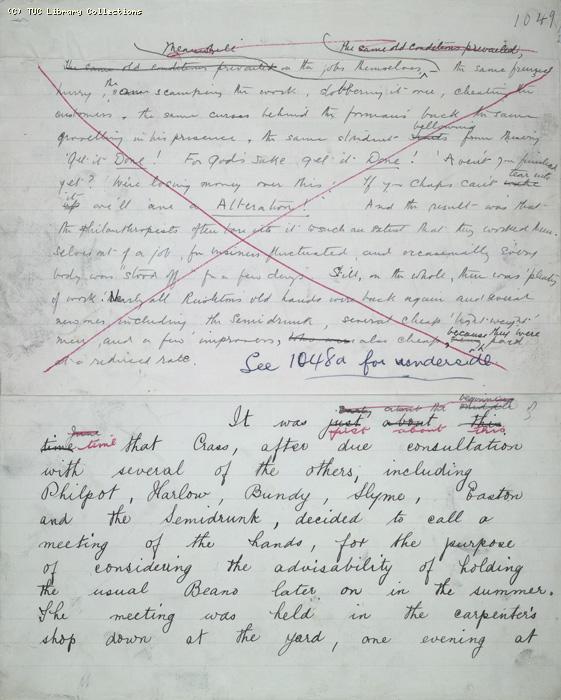 (C) TUC Library Collections
1049
Meanwhile The same old conditions prevailed,
The same old conditions prevailed on the jobs themselves, the same frenzied
hurry, the scamping the work, slobbering it over, cheating the
customers, the same curses behind the foreman's back the same
bellowing
grovelling in his presence, the same strident from Misery
'Get it Done! For God's sake get it Done! 'Aven't you finished
tear into
yet? We're losing money over this! If you chaps can't
it we'll 'ave a Alteration!' And the result was that
the philanthropists often tore into it to such an extent that they worked them-
selves out of a job, for business fluctuated, and occasionally every
body was 'stood off' for a few days. Still, on the whole, there was 'plenty
of work.' Nearly all Rushton's old hands were back again and several
newones including the Semidrunk, several cheap 'light-weight'
because they were
men, and a few improvers, also cheap, paid
at a reduced rate.
See 1048a for underside
about the beginning
It was just about this
just about this
time time that Crass, after due consultation
with several of the others, including
Philpot, Harlow, Bundy, Slyme, Easton
and the Semidrunk, decided to call a
meeting of the hands, for the purpose
of considering the advisability of holding
the usual Beano later on in the summer.
The meeting was held in the carpenter's
shop down at the yard, one evening at